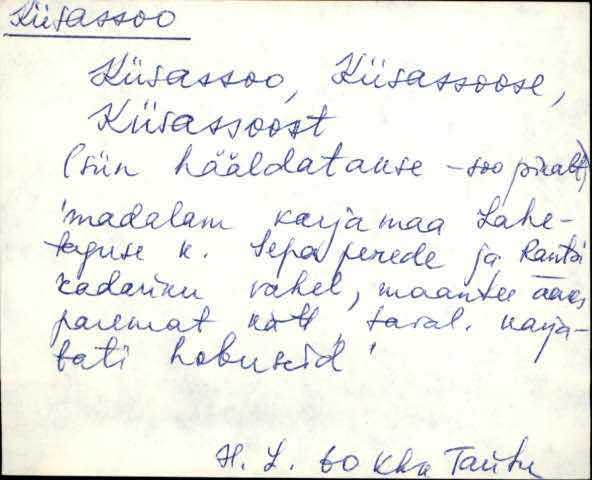 Kiisassoo
Kiisassoo, Kiisassoose,
Kiisassoost
(siin hääldatakse -soo pikalt)
'madalam karjamaa Lahe-
taguse k. Sepa perede ja
kadariku vahel, maantee ääres
paremat kätt, saial. karja-
tati hobuseid'
H. L. 60 Khk